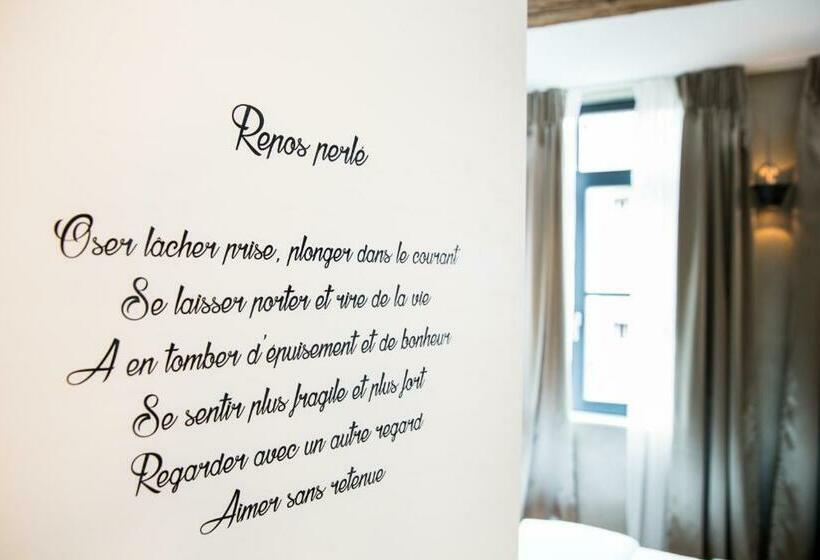 Repos perlé
Oser lâcher prise, plonger dans le courant
Se laisser porter et rire de la vie
A en tomber d'épuisement et de bonheur
Se sentir plus fragile et plus fort
Regarder avec un autre regard
Aimer sans retenue